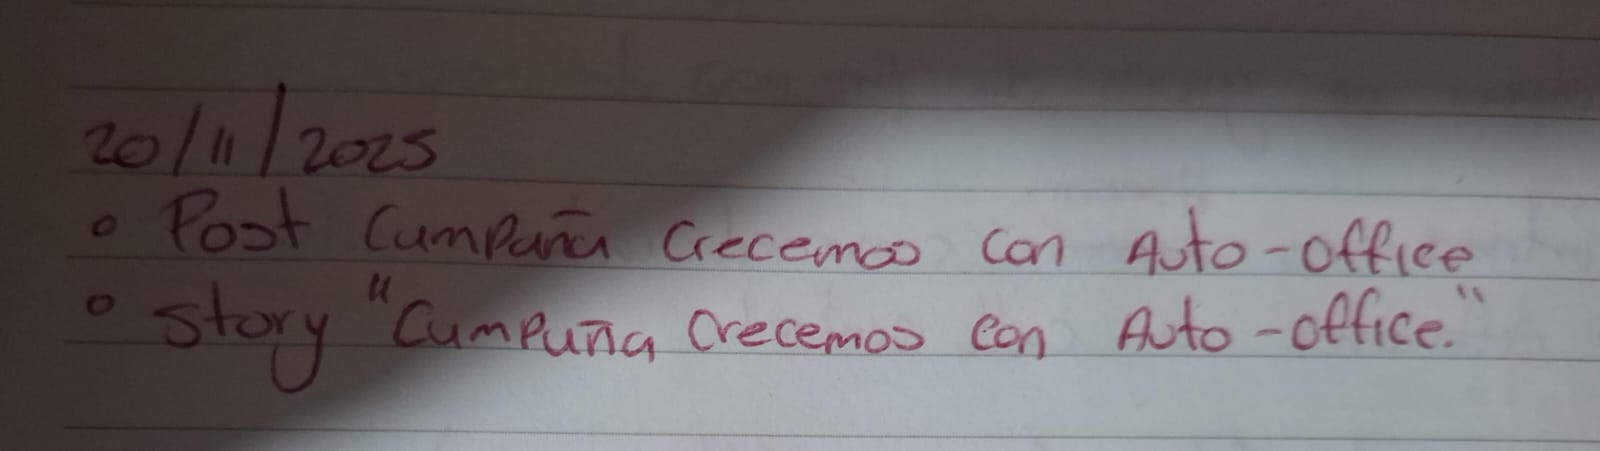 20/11/2025
• Post Campaña Crecemos con Auto-office
• Story "Campaña Crecemos con Auto-office."